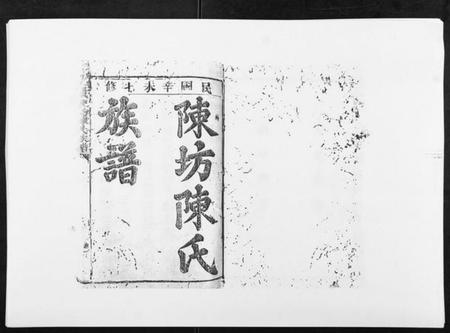 民國辛未七修
陳坊陳氏
族譜